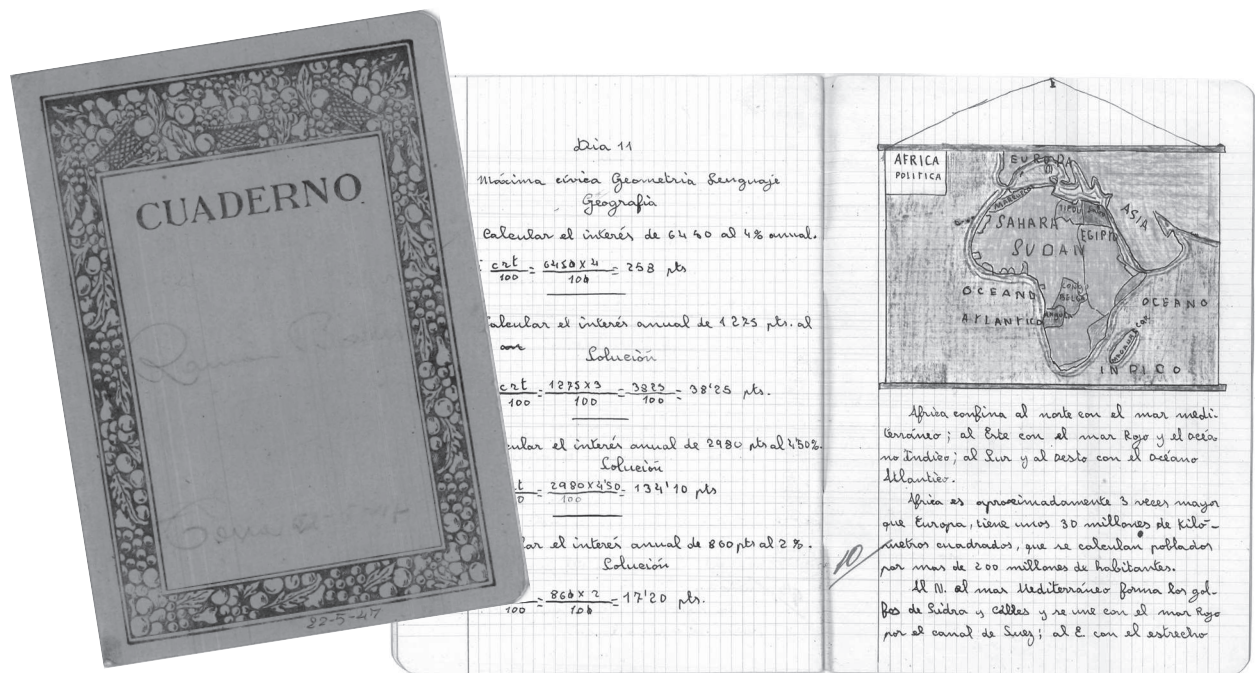 CUADERNO
22-5-47
Dia 11
Máxima cívica Geometria Lenguaje
Geografia
Calcular el interés de 6450 al 4% anual.
crt/100 = 6450 x 4/100 = 258 pts
alcular el interés anual de 1275 pts. al
Solución
crt/100 = 1275 x 3/100 = 3825/100 = 38'25 pts.
cular el interés anual de 2980 pts al 4'50%.
Solución
rt/0 = 2980 x 4'50/100 = 134'10 pts
lar el interés anual de 860 pts al 2%.
Solución
100 = 860 x 2/100 = 17'20 pts.
AFRICA
POLITICA
EUROPA
ASIA
SAHARA
EGIPTO
SUDAN
CONGO
BELGA
ANGOLA
OCEANO
ATLANTICO
OCEANO
INDICO
MADAGASCAR
Africa confina al norte con el mar medi-
terráneo; al Este con el mar Rojo y el océa-
no Indico; al Sur y al Oesto con el océano
Atlantico.
Africa es aproximadamente 3 veces mayor
que Europa, tiene unos 30 millones de kiló-
metros cuadrados, que se calculan poblados
por mas de 200 millones de habitantes.
10
Al N. el mar Mediterráneo forma los gol-
fos de Sidra y y se une con el mar Rojo
por el canal de Suez; al E. con el estrecho